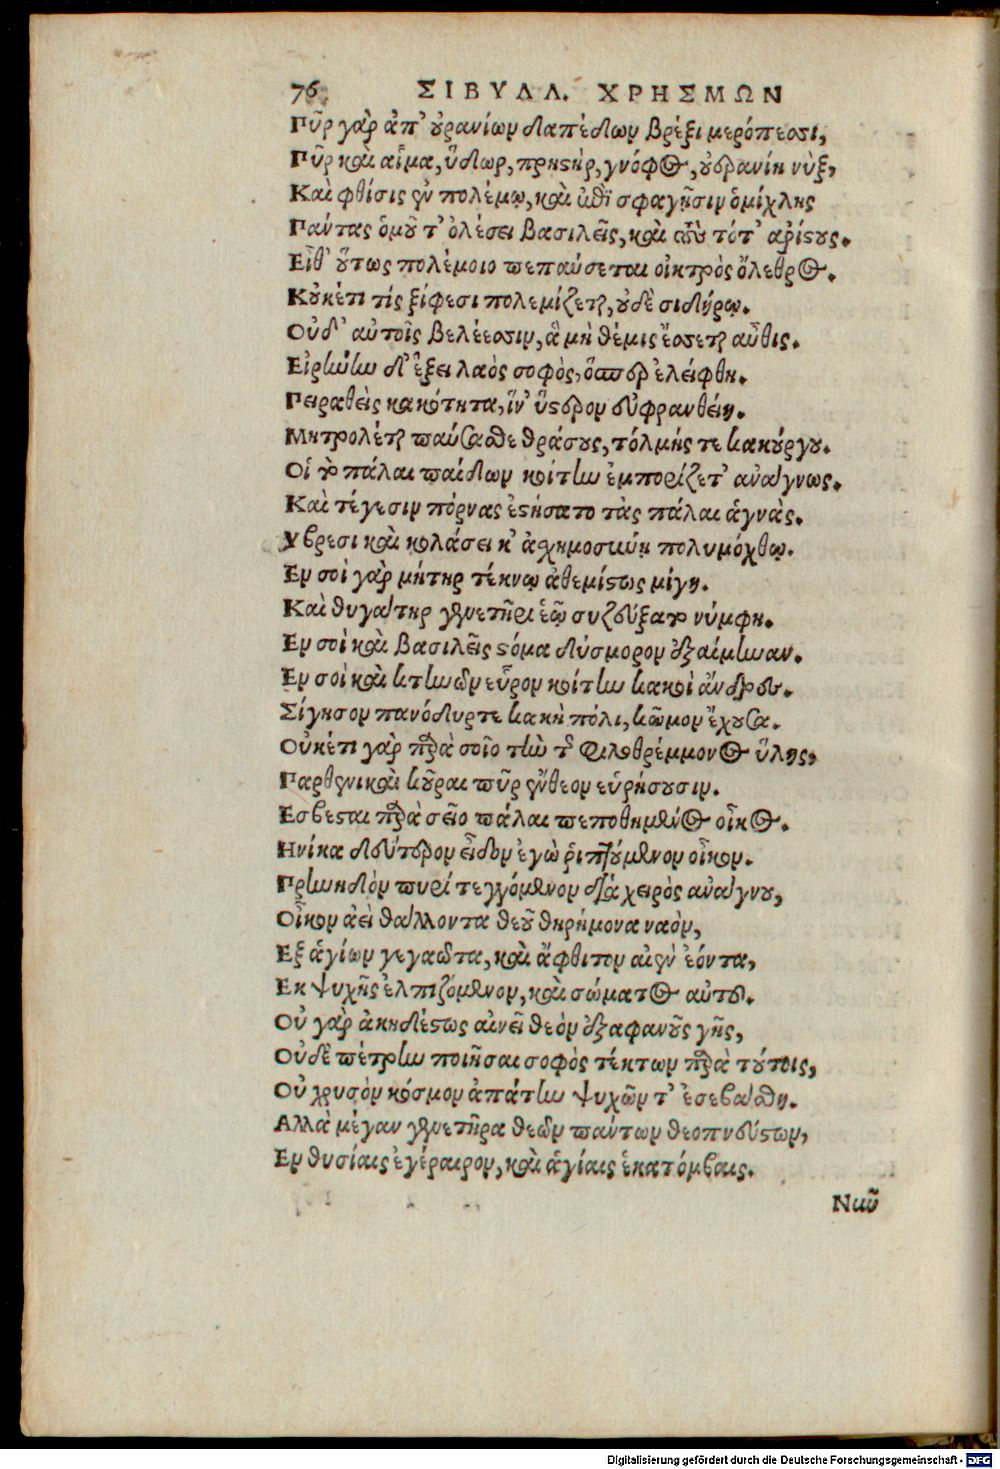 76 ΣΙΒΥΛΛ. ΧΡΗΣΜΩΝ
Πῦρ γὰρ ἀπ' οὐρανίων δαπέδων βρέξι μερόπεσσι,
Πῦρ καὶ αἷμα, ὕδωρ, πρηστὴρ, γνόφος, οὐρανίη νὺξ,
Καὶ φθίσις ἐν πολέμῳ, καὶ ἐπὶ σφαγῇσιν ὁμίχλης
Πάντας ὁμοῦ τ' ὀλέσει βασιλεῖς, καὶ τότ' ἀρίστους.
Εἶθ' οὕτως πολέμοιο πεπαύσεται οἰκτρὸς ὄλεθρος.
Κοὐκέτι τίς ξίφεσι πολεμίζεται, οὐδὲ σιδήρῳ.
Οὐδ' αὐτοῖς βελέεσσιν, ἃ μὴ θέμις ἔσσεται αὖθις.
Εἰρήνην δ' ἕξει λαὸς σοφὸς, ὅσπερ ἐλείφθη.
Πειραθεὶς κακότητα, ἵν' ὕστερον εὐφρανθείη.
Μητρολέται παύσασθε θράσους, τόλμης τε κακούργου.
Οἳ τὸ πάλαι παίδων κοίτην ἐμπορίζετ' ἀνάγνως.
Καὶ τέγεσιν πόρνας ἐστήσατο τὰς πάλαι ἁγνὰς.
Υβρεσι καὶ κολάσει κ' ἀσχημοσύνη πολυμόχθῳ.
Εν σοὶ γὰρ μήτηρ τέκνῳ ἀθεμίστως μίγη.
Καὶ θυγάτηρ γενετῆρι ἑῷ συζεύξατο νύμφη.
Εν σοὶ καὶ βασιλεῖς στόμα δύσμορον ἐξαίμηναν.
Εν σοὶ καὶ κτηνῶν εὗρον κοίτην κακοὶ ἄνδρες.
Σίγησον πανόδυρτε κακὴ πόλι, κῶμον ἔχουσα.
Οὐκέτι γὰρ παρὰ σοῖο τὴν τῆς φιλοθρέμμονος ὕλης,
Παρθενικαὶ κοῦραι πῦρ ἔνθεον εὑρήσουσιν.
Εσβεσται παρὰ σεῖο πάλαι πεποθημένος οἶκος.
Ηνίκα δεύτερον εἶδον ἐγὼ ῥιπτούμενον οἶκον.
Πρηνηδὸν πυρὶ τεγγόμενον διὰ χειρὸς ἀνάγνου,
Οἶκον ἀεὶ θάλλοντα θεοῦ θηρήμονα ναὸν,
Εξ ἁγίων γεγαῶτα, καὶ ἄφθιτον αἰὲν ἐόντα,
Εκ ψυχῆς ἐλπιζόμενον, καὶ σώματος αὐτοῦ.
Οὐ γὰρ ἀκηδέστως αἰνεῖ θεὸν ἐξ ἀφανοῦς γῆς,
Οὐδὲ πέτρην ποιῆσαι σοφὸς τέκτων παρὰ τούτοις,
Οὐ χρυσὸν κόσμον ἀπάτην ψυχῶν τ' ἐσεβάσθη.
Αλλὰ μέγαν γενετῆρα θεὸν πάντων θεοπνεύστων,
Εν θυσίαις ἐγέραιρον, καὶ ἁγίαις ἑκατόμβαις.
Νῦν
Digitalisierung gefördert durch die Deutsche Forschungsgemeinschaft - DFG